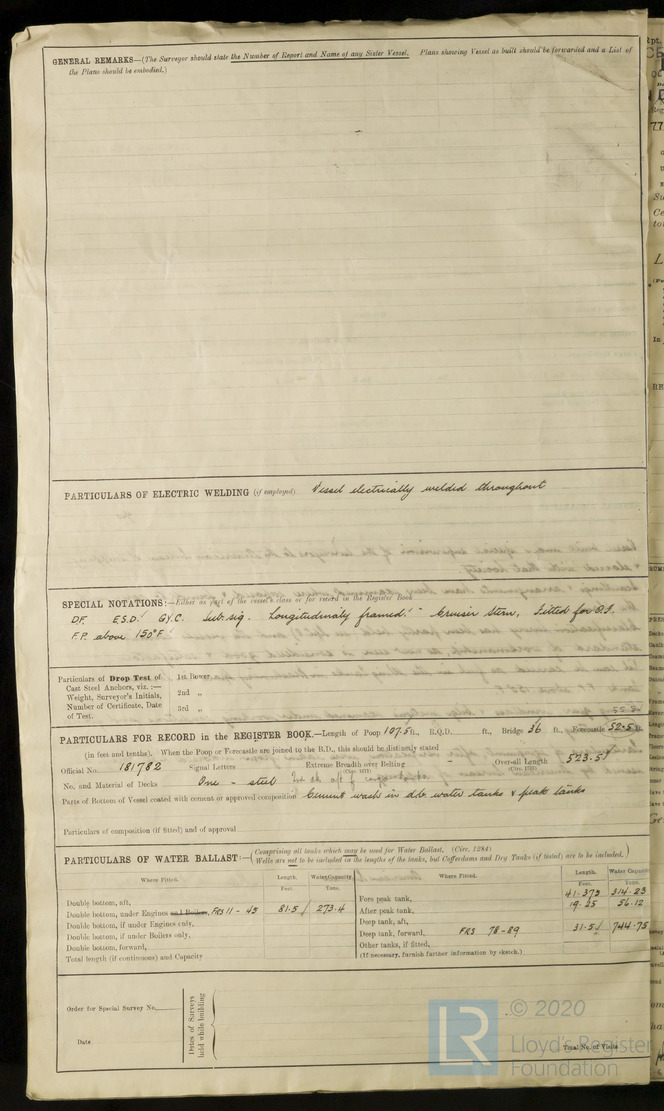 GENERAL REMARKS—(The Surveyor should state the Number of Report and Name of any Sister Vessel. Plans showing Vessel as built should be forwarded and a List of
the Plans should be embodied.)
PARTICULARS OF ELECTRIC WELDING (if employed) Vessel electrically welded throughout
SPECIAL NOTATIONS:—Either as part of the vessel's class or for record in the Register Book
DF. E.S.D. GY.C. Sub. sig. Longitudinally framed. - Cruiser Stern, Fitted for O.F.
F.P. above 150°F
Particulars of Drop Test of
Cast Steel Anchors, viz.:—
Weight, Surveyor's Initials,
Number of Certificate, Date
of Test.
1st Bower
2nd „
3rd „
PARTICULARS FOR RECORD in the REGISTER BOOK.—Length of Poop 107.5 ft., R.Q.D. ft., Bridge 36 ft., Forecastle 52.5 ft.
(in feet and tenths). When the Poop or Forecastle are joined to the B.D., this should be distinctly stated
Official No. 181782 Signal Letters Extreme Breadth over Belting - Over-all Length 523.5
(Circ. 1611) (Circ. 1703)
No. and Material of Decks One - steel 2nd dk
Parts of Bottom of Vessel coated with cement or approved composition Cement wash in dble water tanks & peak tanks
Particulars of composition (if fitted) and of approval
PARTICULARS OF WATER BALLAST:—(Comprising all tanks which may be used for Water Ballast. (Circ. 1284)
Wells are not to be included in the lengths of the tanks, but Cofferdams and Dry Tanks (if tested) are to be included.)
Where Fitted. Length. Water Capacity. Where Fitted. Length. Water Capacity
Feet. Tons. Feet. Tons.
Double bottom, aft, Fore peak tank, 41.375 314.23
Double bottom, under Engines and Boilers, FRS 11 - 45 81.5 273.4 After peak tank, 19.25 56.12
Double bottom, if under Engines only, Deep tank, aft,
Double bottom, if under Boilers only, Deep tank, forward, FRS 78-89 31.5 744.75
Double bottom, forward, Other tanks, if fitted,
Total length (if continuous) and Capacity (If necessary, furnish further information by sketch.)
Order for Special Survey No.
Date
Dates of Surveys
held while building
Total No. of Visits
LR
© 2020
Lloyd's Register
Foundation